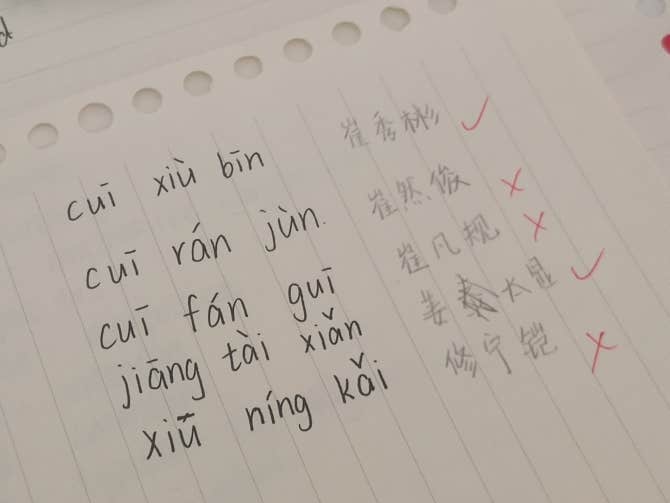 d
cuī xiù bīn 崔秀彬 ✓
cuī rán jùn. 崔然俊 ×
cuī fán guī 崔凡规 ×
jiāng tài xiǎn 姜太显 ✓
xiū níng kǎi 修宁铠 ×